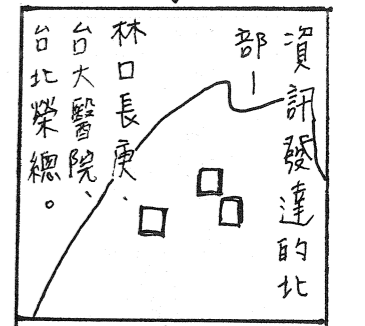 資訊發達的北
部—
林口長庚、
台大醫院、
台北榮總。